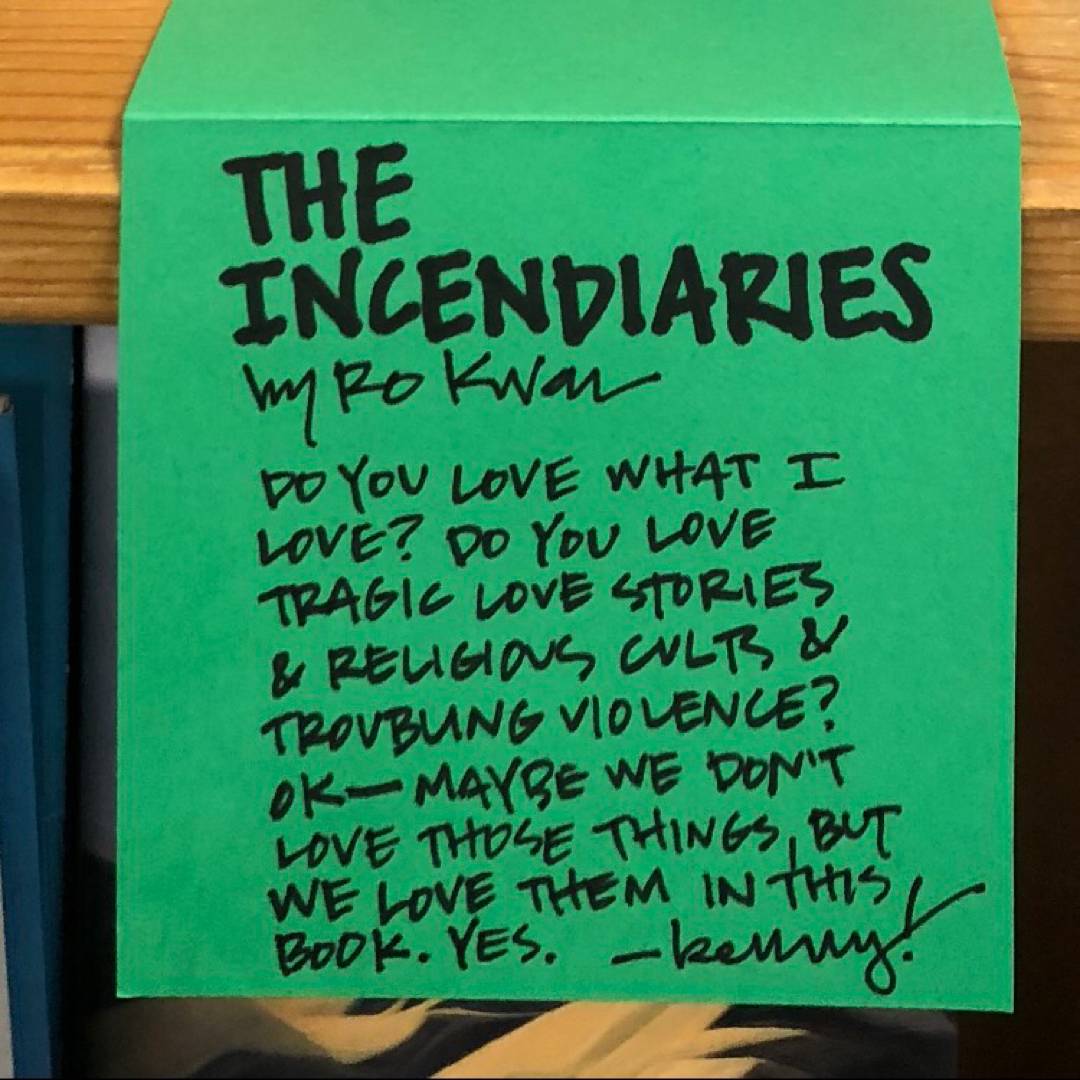 THE
INCENDIARIES
by RO KWON
DO YOU LOVE WHAT I
LOVE? DO YOU LOVE
TRAGIC LOVE STORIES
& RELIGIOUS CULTS &
TROUBLING VIOLENCE?
OK—MAYBE WE DON'T
LOVE THOSE THINGS, BUT
WE LOVE THEM IN THIS
BOOK. YES. —kenny!